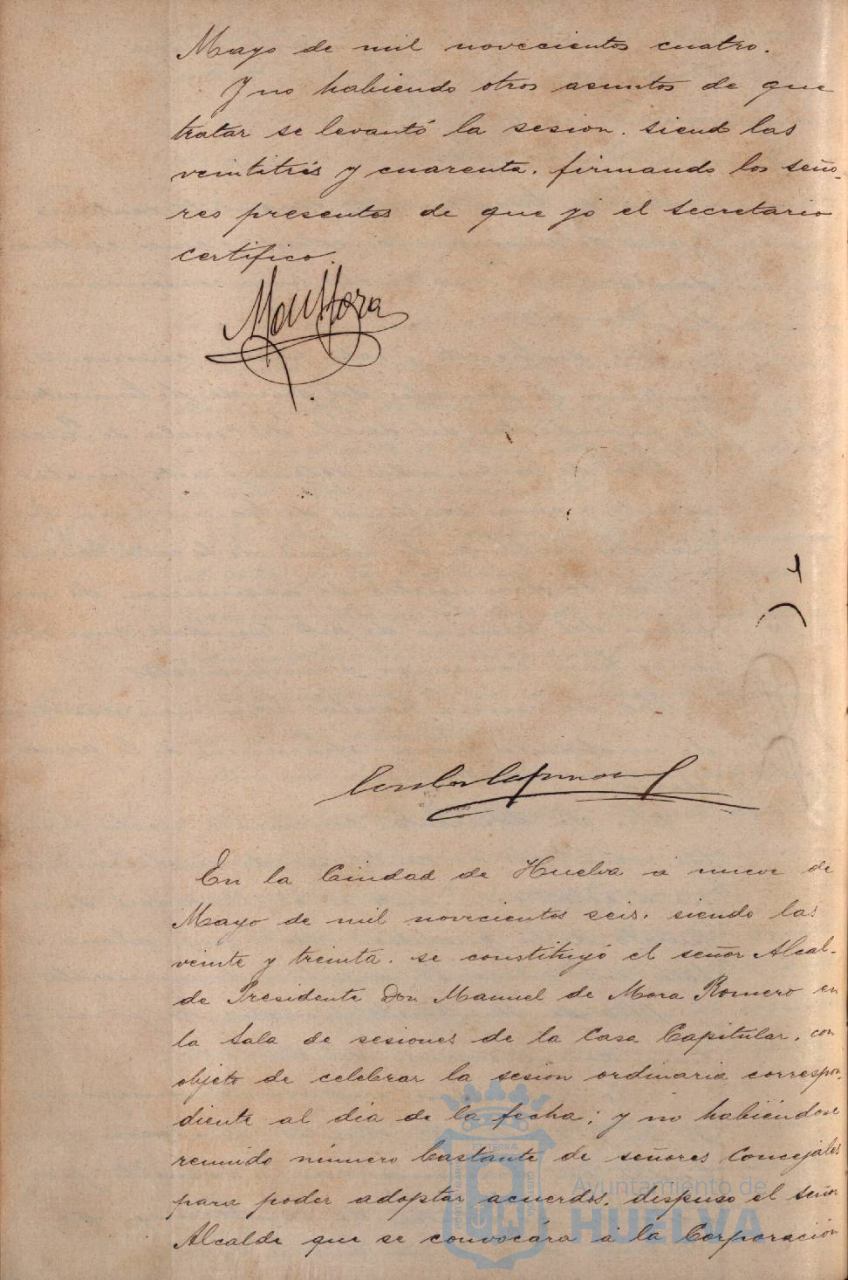 Mayo de mil novecientos cuatro.
Y no habiendo otros asuntos de que
tratar se levantó la sesion, siend las
veintitrés y cuarenta, firmando los seño-
res presentes de que yo el secretario
certifico.
En la Ciudad de Huelva a nueve de
Mayo de mil novecientos seis, siendo las
veinte y treinta, se constituyó el señor Alcal-
de Presidente Don Manuel de Mora Romero en
la Sala de sesiones de la Casa Capitular, con
objeto de celebrar la sesion ordinaria correspon-
diente al dia de la fecha; y no habiéndose
reunido número bastante de señores Concejales
para poder adoptar acuerdos, dispuso el señor
Alcalde que se convocára á la Corporación
Ayuntamiento de
HUELVA